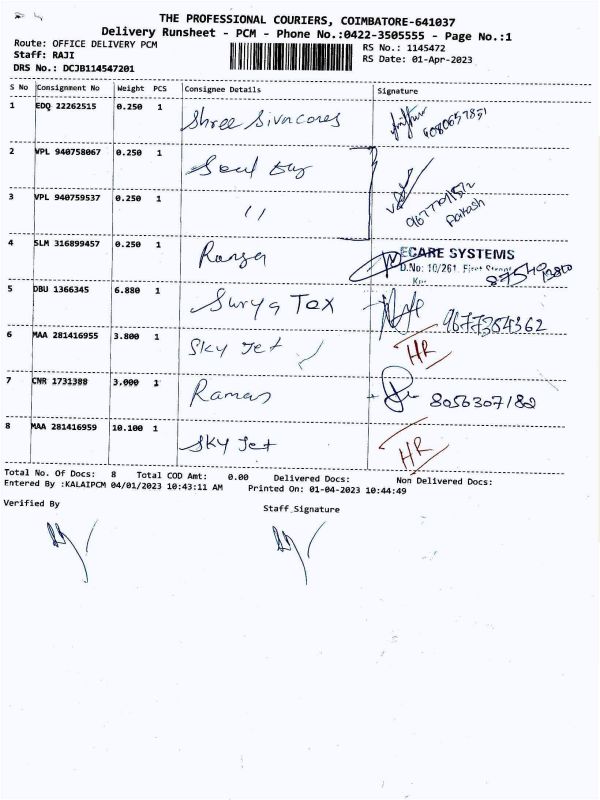 THE PROFESSIONAL COURIERS, COIMBATORE-641037
Delivery Runsheet - PCM - Phone No.:0422-3505555 - Page No.:1
Route: OFFICE DELIVERY PCM
RS No.: 1145472
Staff: RAJI
RS Date: 01-Apr-2023
DRS No.: DCJB114547201
S No Consignment No Weight PCS Consignee Details Signature
1 EDQ 22262515 0.250 1 Shree Sivacores
2 VPL 940758067 0.250 1
3 VPL 940759537 0.250 1 11
Pakash
4 SLM 316899457 0.250 1 Ranger
ECARE SYSTEMS
D.No: 10/261, First Street
5 DBU 1366345 6.880 1 Surya Tex 9677354362
6 MAA 281416955 3.800 1 Sky Jet HR
7 CNR 1731388 3.000 1 Ramas 8056307182
8 MAA 281416959 10.100 1 Sky Jet HR
Total No. Of Docs: 8 Total COD Amt: 0.00 Delivered Docs: Non Delivered Docs:
Entered By :KALAIPCM 04/01/2023 10:43:11 AM Printed On: 01-04-2023 10:44:49
Verified By Staff Signature